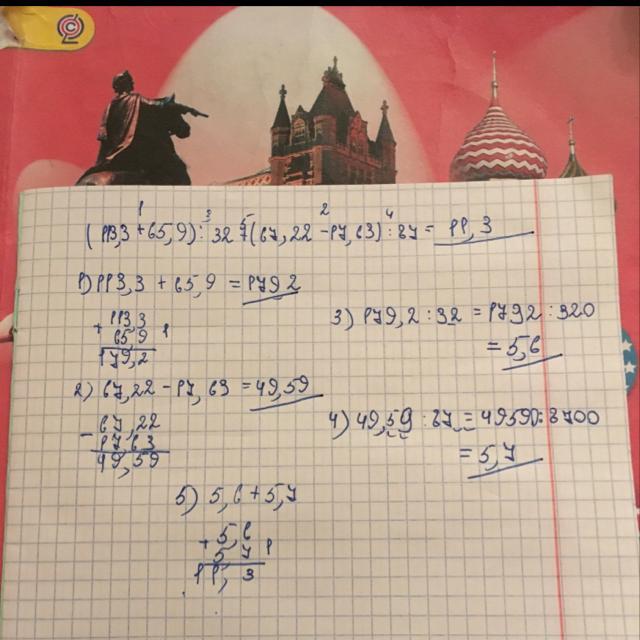 1 3 5 2 4
(113,3+65,9):32+(67,22-17,63):87=11,3
1) 113,3+65,9=179,2
+113,3
65,9
179,2
2) 67,22-17,63=49,59
-67,22
17,63
49,59
3) 179,2:32=1792:320
=5,6
4) 49,59:87=49590:8700
=5,7
5) 5,6+5,7
+5,6
5,7
11,3